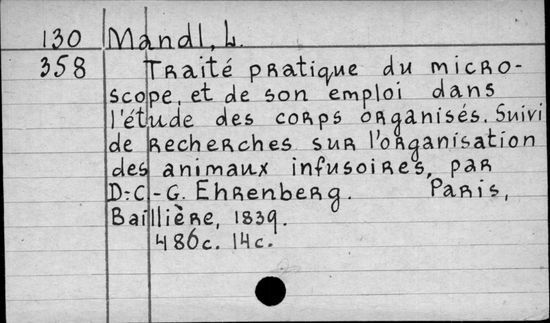 130 Mandl, L.
358 Traité pratique du micro-
scope, et de son emploi dans
l'étude des corps organisés. Suivi
de recherches sur l'organisation
des animaux infusoires, par
D.-C.-G. Ehrenberg. Paris,
Baillière, 1839.
486c. 14c.